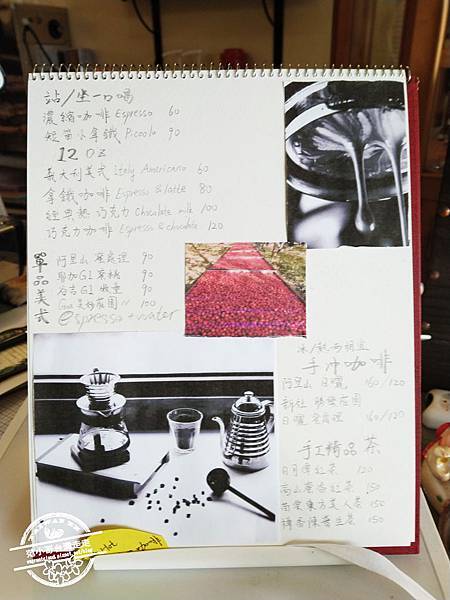 站/坐一口喝
濃縮咖啡 Espresso 60
短笛小拿鐵 Piccolo 90
12 oz
義大利美式 Italy Americano 60
拿鐵咖啡 Espresso & latte 80
經典熱巧克力 Chocolate milk 100
巧克力咖啡 Espresso & chocolate 120
單品美式
阿里山 蜜處理 90
耶加G1 90
谷吉G1 90
100
espresso + water
冰/熱兩相宜
手沖咖啡
阿里山 日曬 150/120
新社
日曬 蜜處理 160/120
手工精品茶
日月潭紅茶 120
高山蜜香紅茶 150
苗栗東方美人茶 150
陳年 150
Hot